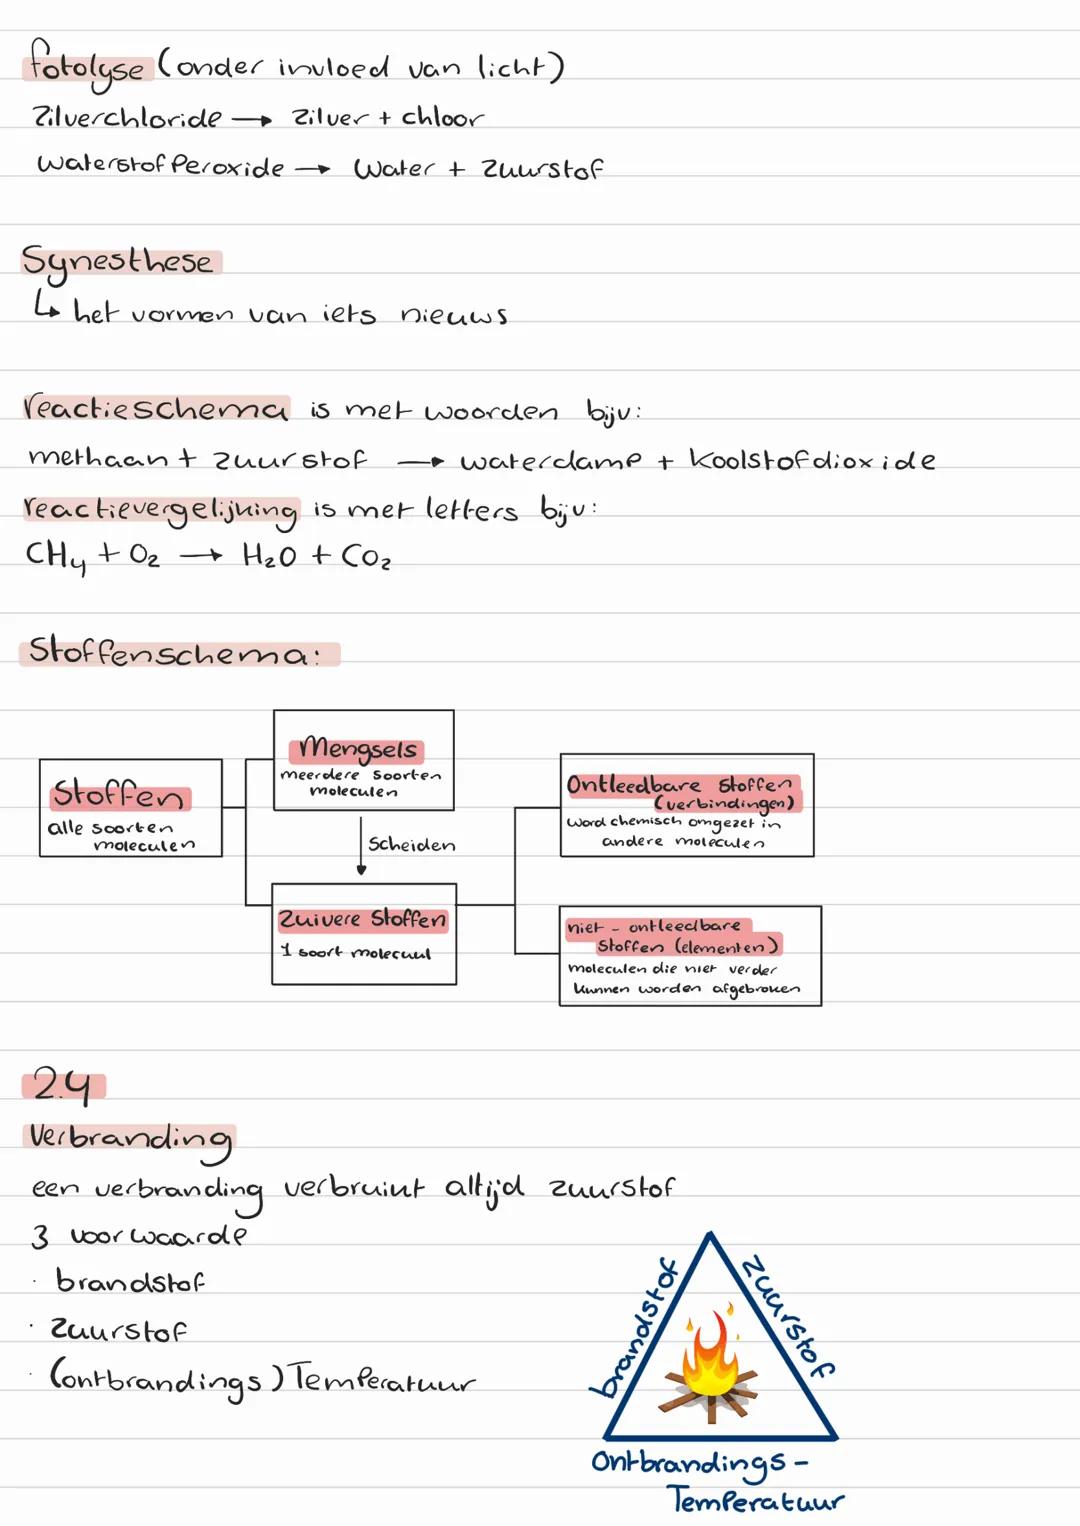 fotolyse (onder invloed van licht)
Zilverchloride → zilver + chloor
Waterstofperoxide → Water + zuurstof
Synesthese
↳ het vormen van iets nieuws
reactieschema is met woorden bijv:
methaan + zuurstof → waterdamp + Koolstofdioxide
reactievergelijking is met letters bijv:
CH₄ + O₂ → H₂O + CO₂
Stoffenschema:
Stoffen
alle soorten
moleculen
Mengsels
meerdere soorten
moleculen
Scheiden
Zuivere Stoffen
1 soort molecuul
Ontleedbare Stoffen
(verbindingen)
Word chemisch omgezet in
andere moleculen
niet - ontleedbare
Stoffen (elementen)
moleculen die niet verder
kunnen worden afgebroken
2.4
Verbranding
een verbranding verbruikt altijd zuurstof
3 voorwaarde
· brandstof
· Zuurstof
· (ontbrandings) Temperatuur
brandstof
zuurstof
Ontbrandings -
Temperatuur